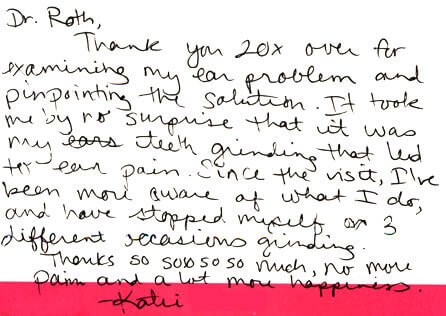 Dr. Roth,
Thank you 20x over for
examining my ear problem and
pinpointing the solution. It took
me by no surprise that it was
my ears teeth grinding that led
to ear pain. Since the visit, I've
been more aware of what I do,
and have stopped myself on 3
different occasions grinding.
Thanks so so so so so much, no more
pain and a lot more happiness.
-Katii